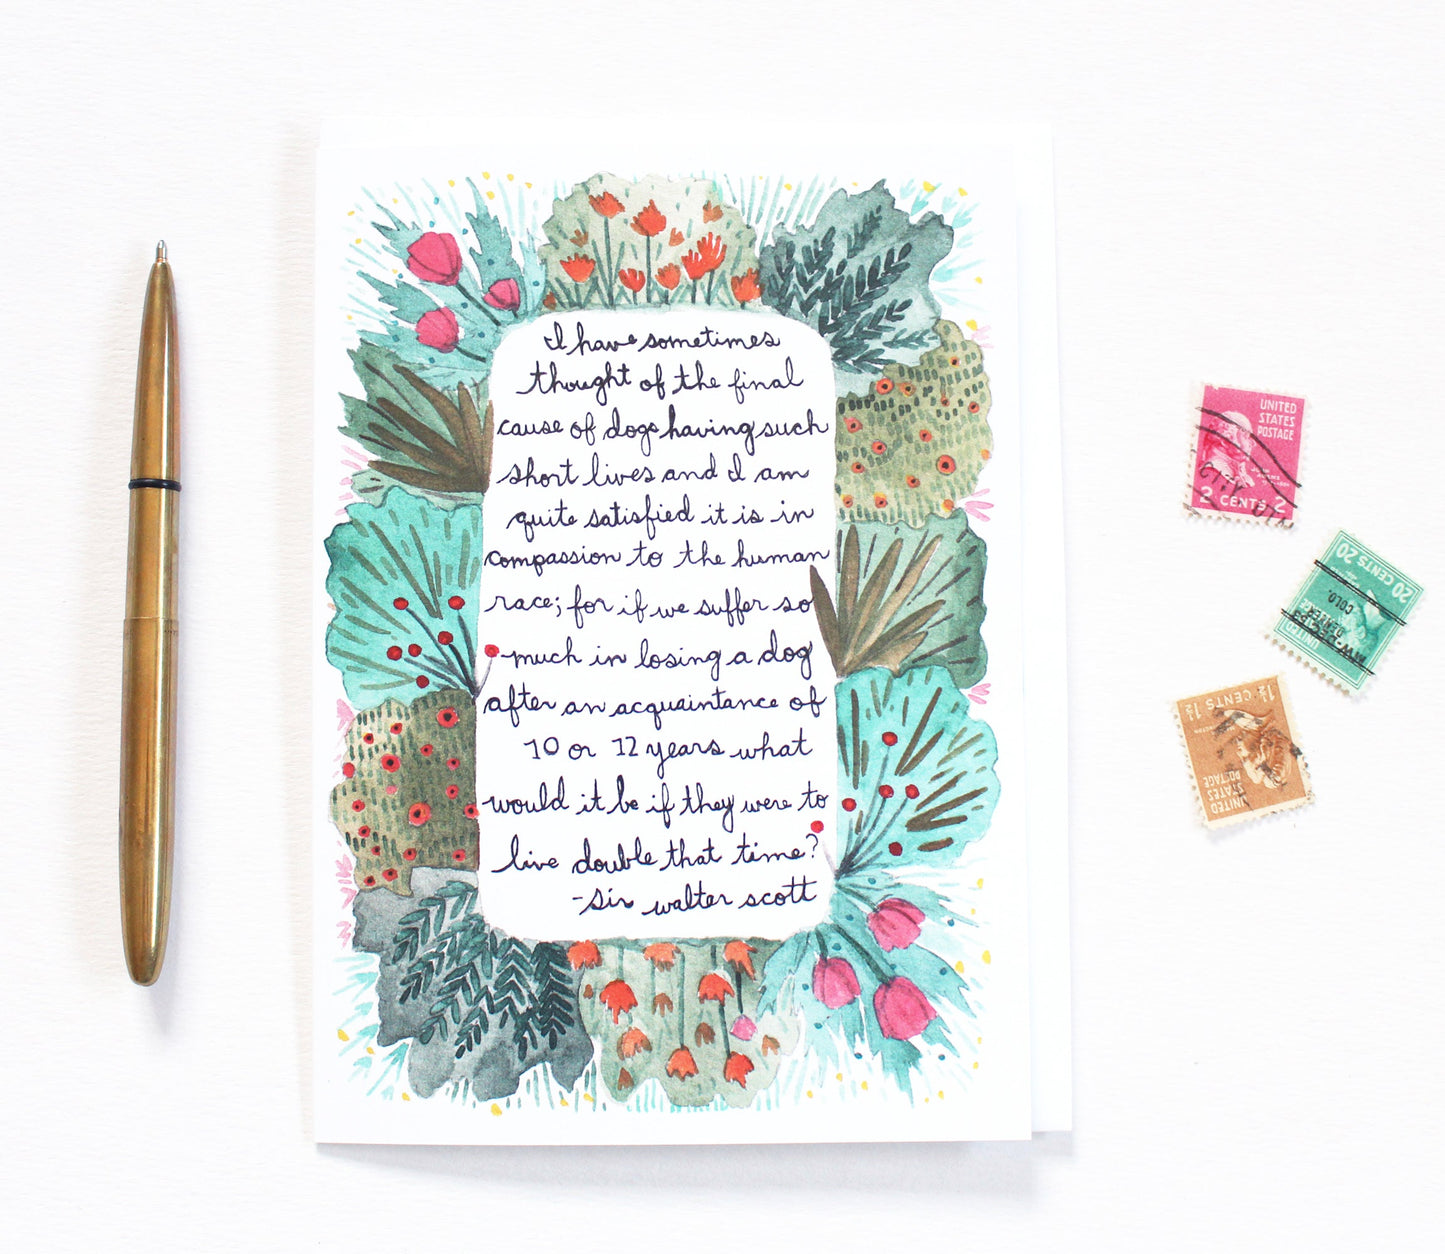 I have sometimes
thought of the final
cause of dogs having such
short lives and I am
quite satisfied it is in
compassion to the human
race; for if we suffer so
much in losing a dog
after an acquaintance of
10 or 12 years what
would it be if they were to
live double that time?
-Sir Walter Scott
UNITED
STATES
POSTAGE
2 CENTS 2
20 CENTS 20
DENVER
COLO.
1½ CENTS 1½
UNITED
STATES
POSTAGE